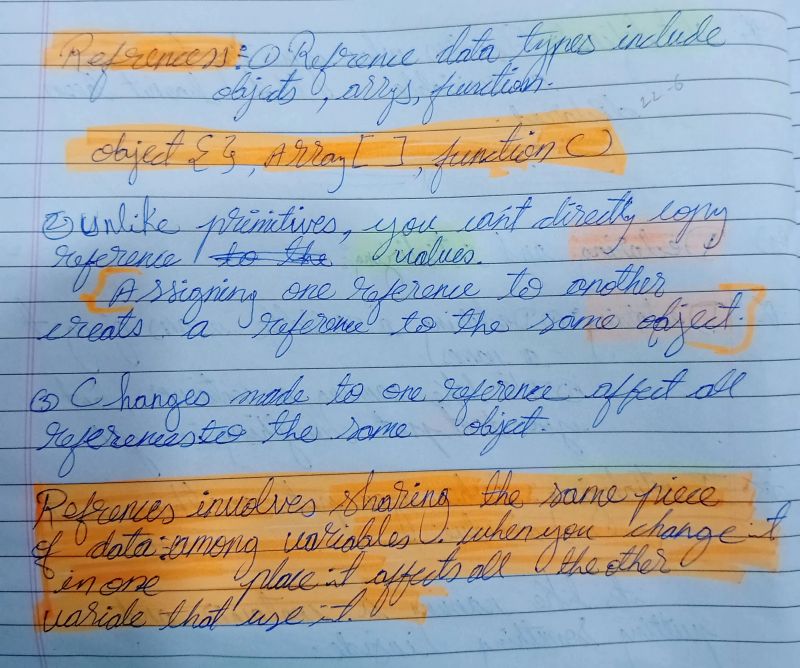 Refrences:- ① Refrence data types include
objects, arrys, function.
22-6
object { }, Array [ ], function ( )
② unlike primitives, you can't directly copy
reference to the values.
{Assigning one reference to another
creats a reference to the same object.}
③ Changes made to one reference affect all
references to the same object.
Refrences involves sharing the same piece
of data among variables. when you change it
in one place it affects all the other
variale that use it.